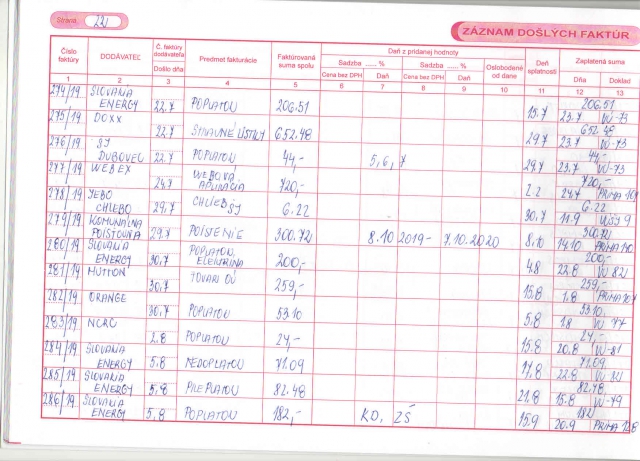 Strana: 221
ZÁZNAM DOŠLÝCH FAKTÚR
Číslo faktúry
DODÁVATEĽ
Č. faktúry dodávateľa
Došlo dňa
Predmet fakturácie
Faktúrovaná suma spolu
Daň z pridanej hodnoty
Sadzba ...... %
Sadzba ...... %
Cena bez DPH
Daň
Cena bez DPH
Daň
Oslobodené od dane
Deň splatnosti
Zaplatená suma
Dňa
Doklad
1 2 3 4 5 6 7 8 9 10 11 12 13
274/19 SLOVAKIA ENERGY 22.7 POPLATOK 206.51 15.7 206.51 23.7 VÚ-73
275/19 DOXX 22.7 STRAVNÉ LÍSTKY 652.48 29.7 652.48 23.7 VÚ-73
276/19 DUBOVEC 22.7 POPLATOK 44,- 5,6,7 29.7 44,- 23.7 VÚ-73
277/19 WEBEX 24.7 WEBOVÁ APLIKÁCIA 720,- 2.2 720,- 24.7 PRIMA
278/19 JEBO CHLEBO 29.7 CHLIEB ŠJ 6.22 30.7 6.22 11.9 VÚŠJ 9
279/19 KOMUNÁLNA POISŤOVŇA 29.7 POISTENIE 300.72 8.10 2019 - 7.10.2020 8.10 300.72 14.10 PRIMA
280/19 SLOVAKIA ENERGY 30.7 POPLATOK, ELEKTRINA 200,- 4.8 200,- 22.8 VÚ 82
281/19 HUTTON 30.7 TOVAR OÚ 259,- 15.8 259,- 1.8 PRIMA 107
282/19 ORANGE 30.7 POPLATOK 53.10 5.8 53.10 1.8 VÚ-77
283/19 NCRC 2.8 POPLATOK 24,- 15.8 24,- 20.8 VÚ-81
284/19 SLOVAKIA ENERGY 5.8 NEDOPLATOK 71.09 14.8 71.09 22.8 VÚ 82
285/19 SLOVAKIA ENERGY 5.8 PREPLATOK 82.48 21.8 82.48 15.8 VÚ-79
286/19 SLOVAKIA ENERGY 5.8 POPLATOK 182,- KD, ZŠ 15.9 182 20.9 PRIMA 128